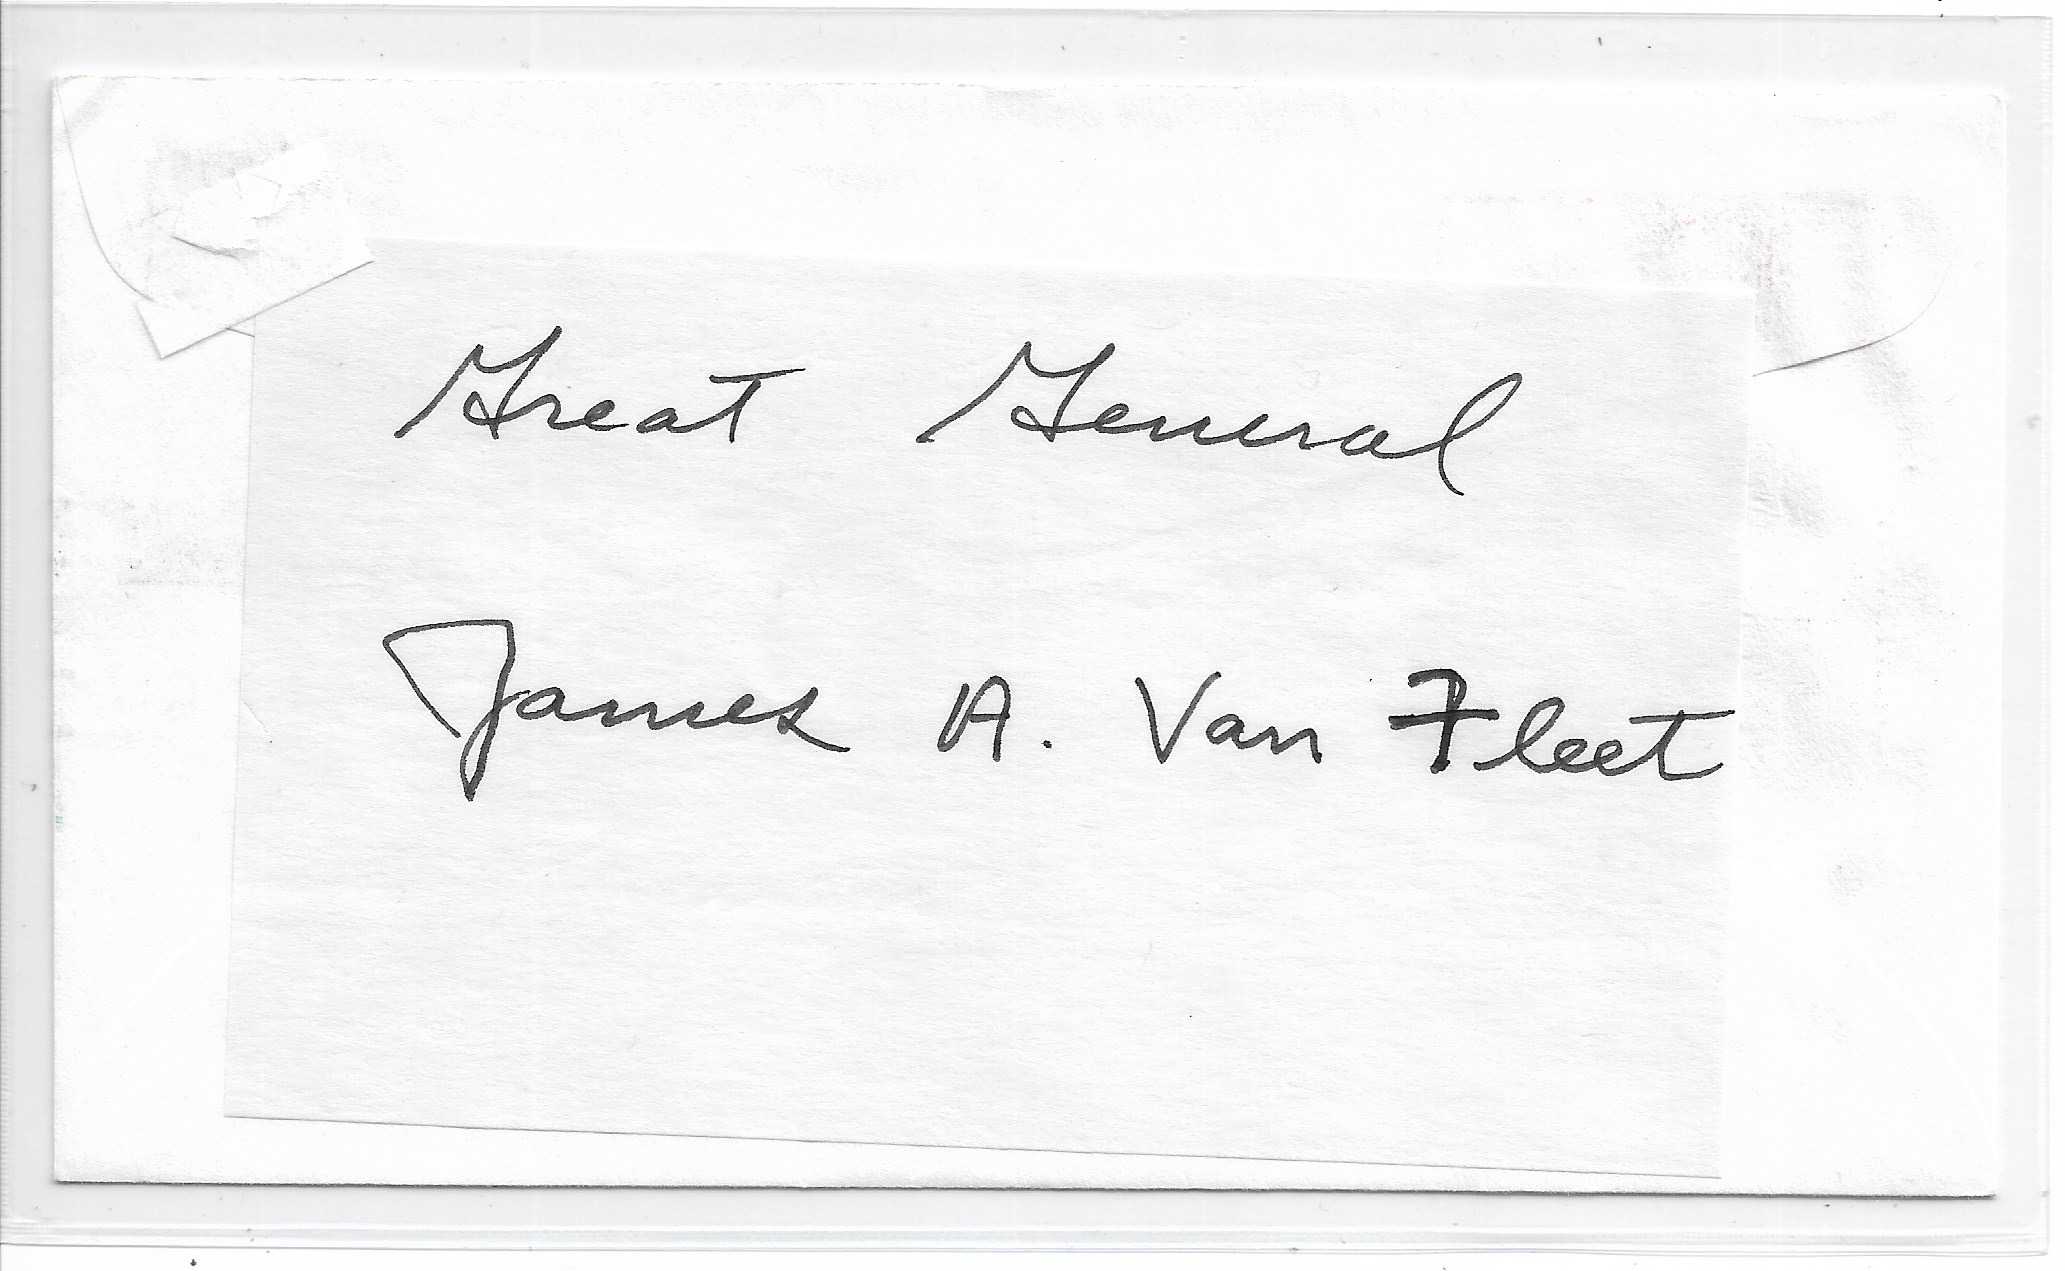 Great General
James A. Van Fleet